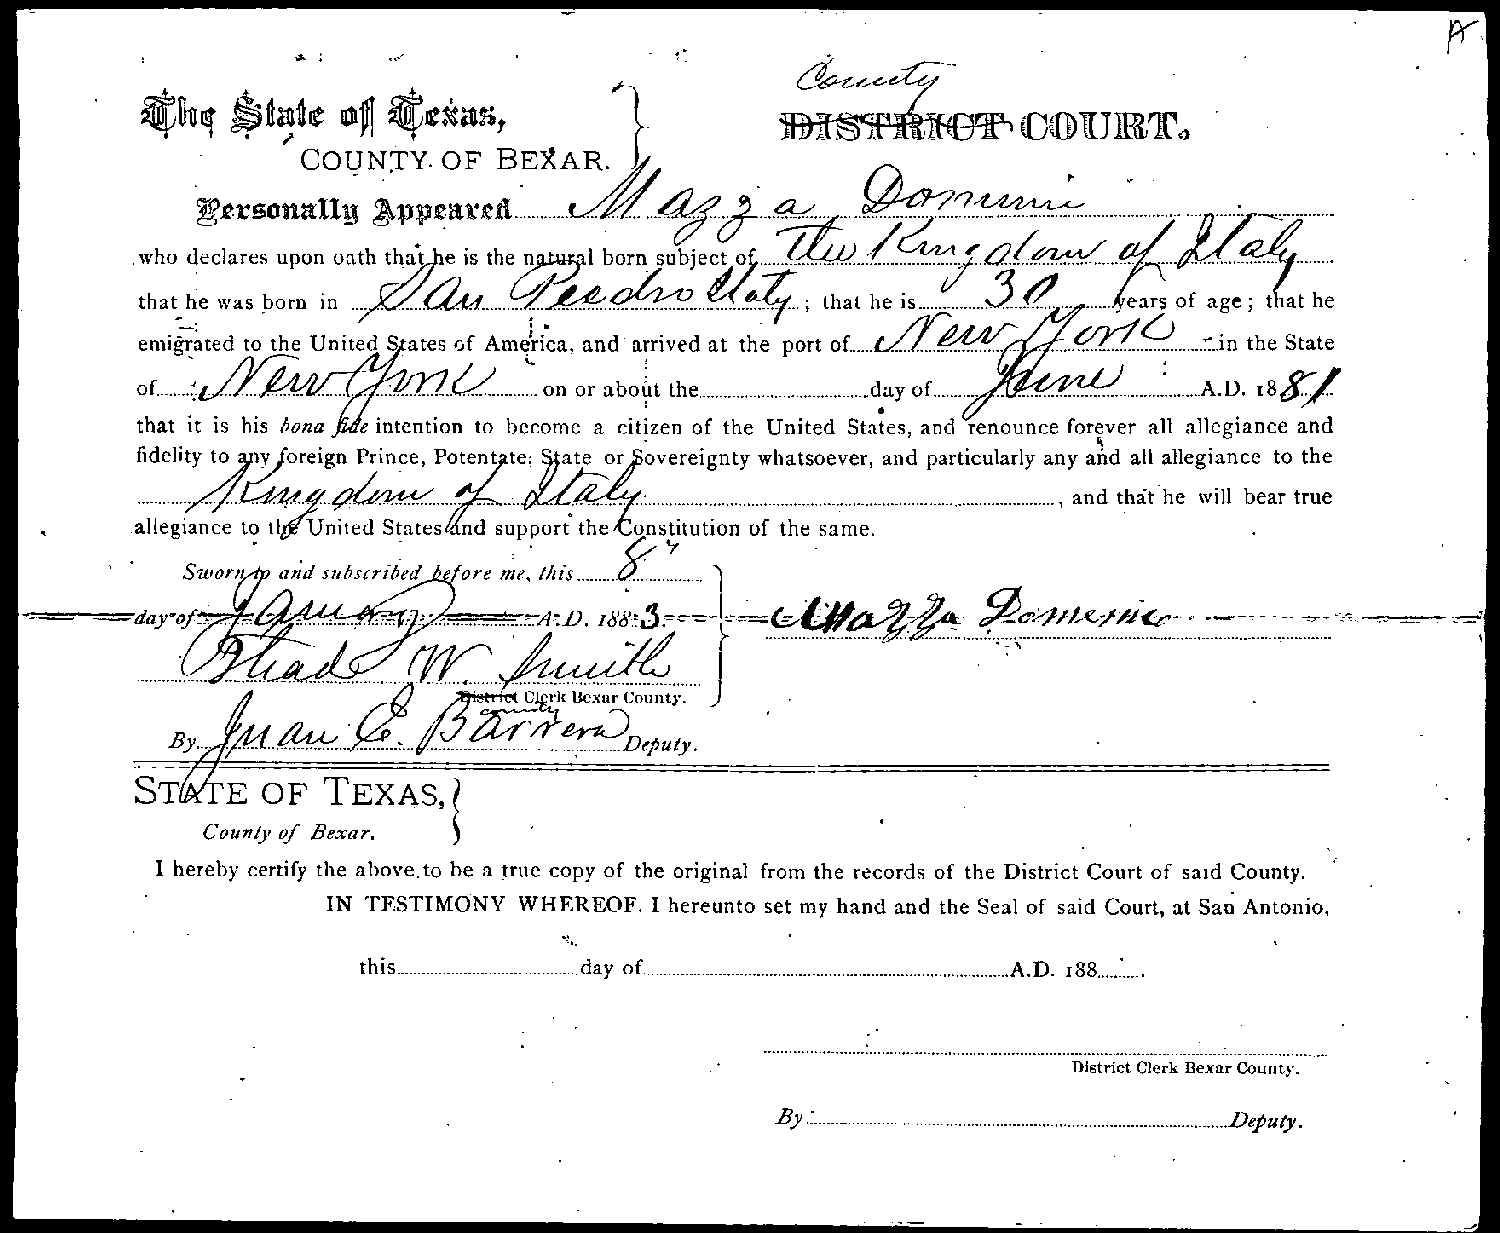 A
County
The State of Texas, DISTRICT COURT.
COUNTY OF BEXAR.
Personally Appeared Mazza Dominic
who declares upon oath that he is the natural born subject of The Kingdom of Italy
that he was born in San Peedro Italy; that he is 30 years of age; that he
emigrated to the United States of America, and arrived at the port of New York in the State
of New York on or about the day of June A.D. 1881
that it is his bona fide intention to become a citizen of the United States, and renounce forever all allegiance and
fidelity to any foreign Prince, Potentate, State or Sovereignty whatsoever, and particularly any and all allegiance to the
Kingdom of Italy, and that he will bear true
allegiance to the United States and support the Constitution of the same.
Sworn to and subscribed before me, this 8"
day of January A.D. 1883 Mazza Domenic
Thad W. Smith
District Clerk Bexar County.
County
By Juan E. Barrera Deputy.
STATE OF TEXAS,
County of Bexar.
I hereby certify the above to be a true copy of the original from the records of the District Court of said County.
IN TESTIMONY WHEREOF, I hereunto set my hand and the Seal of said Court, at San Antonio,
this day of A.D. 188
District Clerk Bexar County.
By Deputy.